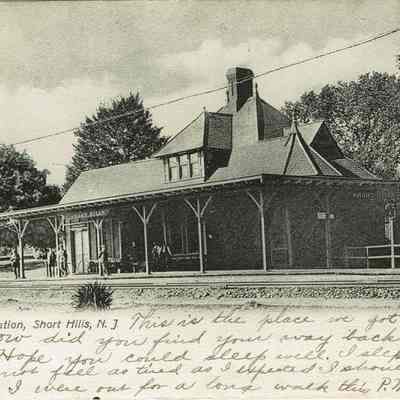 SHORT HILLS
ation, Short Hills, N. J This is the place we got
ow did you find your way back
Hope you could sleep well. I slep
not feel as tired as I expected I shoul
I were out for a long walk this P.M